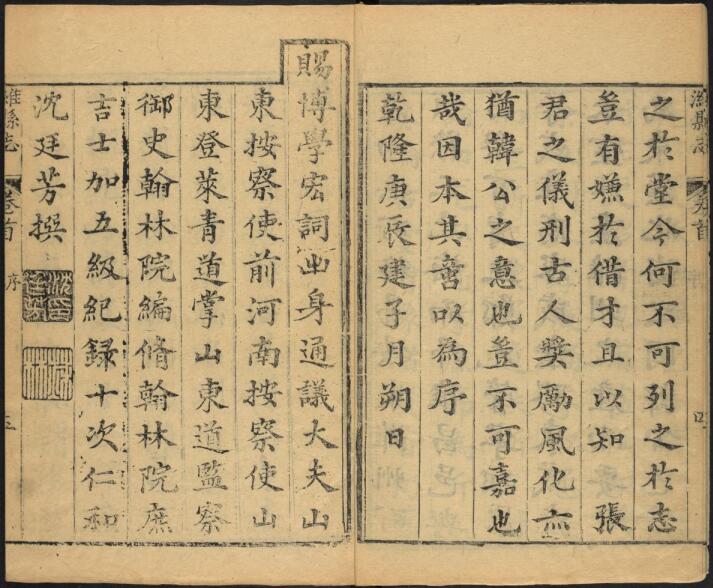 之於堂今何不可列之於志
豈有嫌於借才且以知 張
君之儀刑古人奬勵風化亦
猶韓公之意也豈不可嘉也
哉因本其意以為序
乾隆庚辰建子月朔日
賜博學宏詞出身通議大夫山
東按察使前河南按察使山
東登萊青道掌山東道監察
御史翰林院編脩翰林院庶
吉士加五級紀録十次仁和
沈廷芳撰
濰縣志
卷首
序